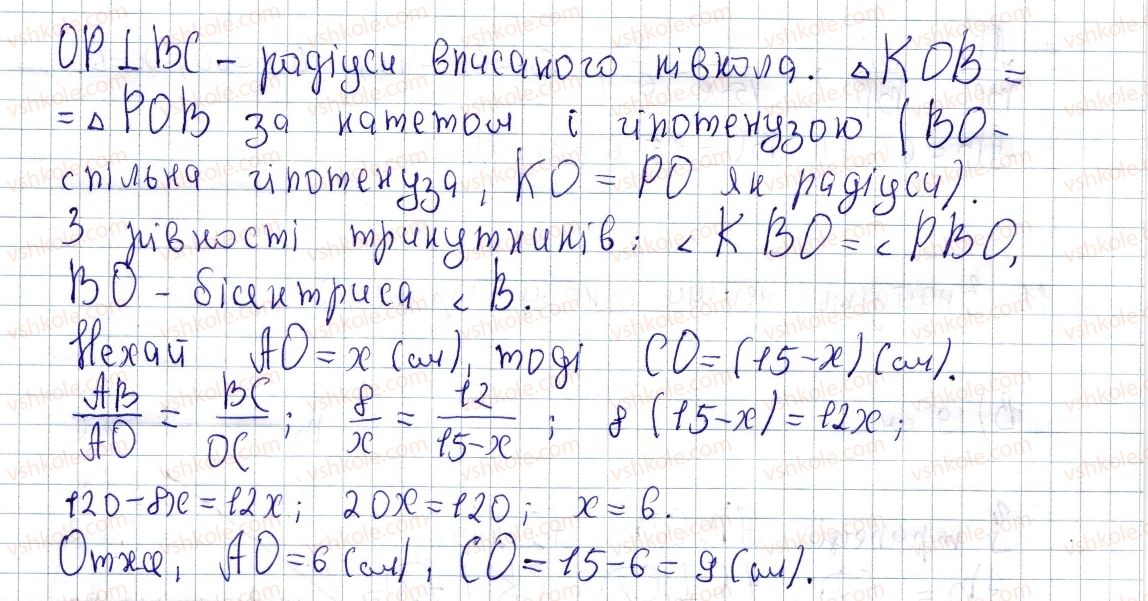 OP⊥BC – радіуси вписаного півкола. △KOB =
= △POB за катетом і гіпотенузою (BO –
спільна гіпотенуза, KO = PO як радіуси).
З рівності трикутників: ∠KBO = ∠PBO,
BO – бісектриса ∠B.
Нехай AO = x (см), тоді CO = (15 – x) (см).
AB/AO = BC/OC; 8/x = 12/(15–x); 8(15–x) = 12x;
120–8x = 12x; 20x = 120; x = 6.
Отже, AO = 6 (см), CO = 15 – 6 = 9 (см).
vshkole.com